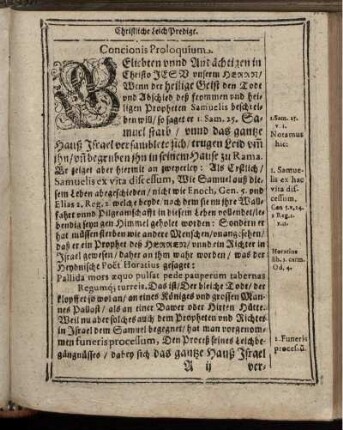 Christliche Leich Predige.
Concionis Proloquium.
GEliebten vnnd Andächtigen in
Christo JESV vnserm HERRN/
Wenn der heilige Geist den Tode
vnd Abschied deß frommen vnd hei-
ligen Propheten Samuelis beschrei-
ben will/ so saget er 1. Sam. 25. Sa-
muel starb / vnnd das gantze
Hauß Israel versamblete sich/ trugen Leid vm
ihn/ vñ begruben ihn in seinem Hause zu Rama.
Er zeiget aber hiermit an zweyerley: Als Erstlich/
Samuelis ex vita discessum, Wie Samuel auß die-
sem Leben abgeschieden/ nicht wie Enoch, Gen. 5. vnd
Elias 2. Reg. 2 welche beyde/ nach dem sie nu ihre Walle-
fahrt vnnd Pilgramschafft in diesem Leben vollendet/ le-
bendig seyn gen Himmel geholet worden: Sondern er
hat müssen sterben wie andere Menschen/ vnangesehen/
daß er ein Prophet des HERREN/ vnnd ein Richter in
Israel gewesen/ daher an ihm wahr worden/ was der
Heydnische Poët Horatius gesaget:
Pallida mors æquo pulsat pede pauperum tabernas
Regumq́; turreis. Das ist/ Der bleiche Tode/ der
klopffet ja so wol an/ an eines Königes vnd grossen Man-
nes Pallast/ als an einer Bawer oder Hirten Hütte.
Weil nu aber solches auch dem Propheten vnd Richter
in Israel dem Samuel begegnet/ hat man vorgenom-
men funeris processum, Den Proceß seines Leichbe-
gängnüsses/ dabey sich das gantze Hauß Israel
A ij ver-
1. Sam. 25.
v. 1.
Notamus
hic:
1. Samue-
lis ex hac
vita dis-
cessum.
Gen 5. v. 24
2 Reg. 2
v. 11.
Horatius
lib. 1. carm.
Od. 4.
2. Funeris
processū.